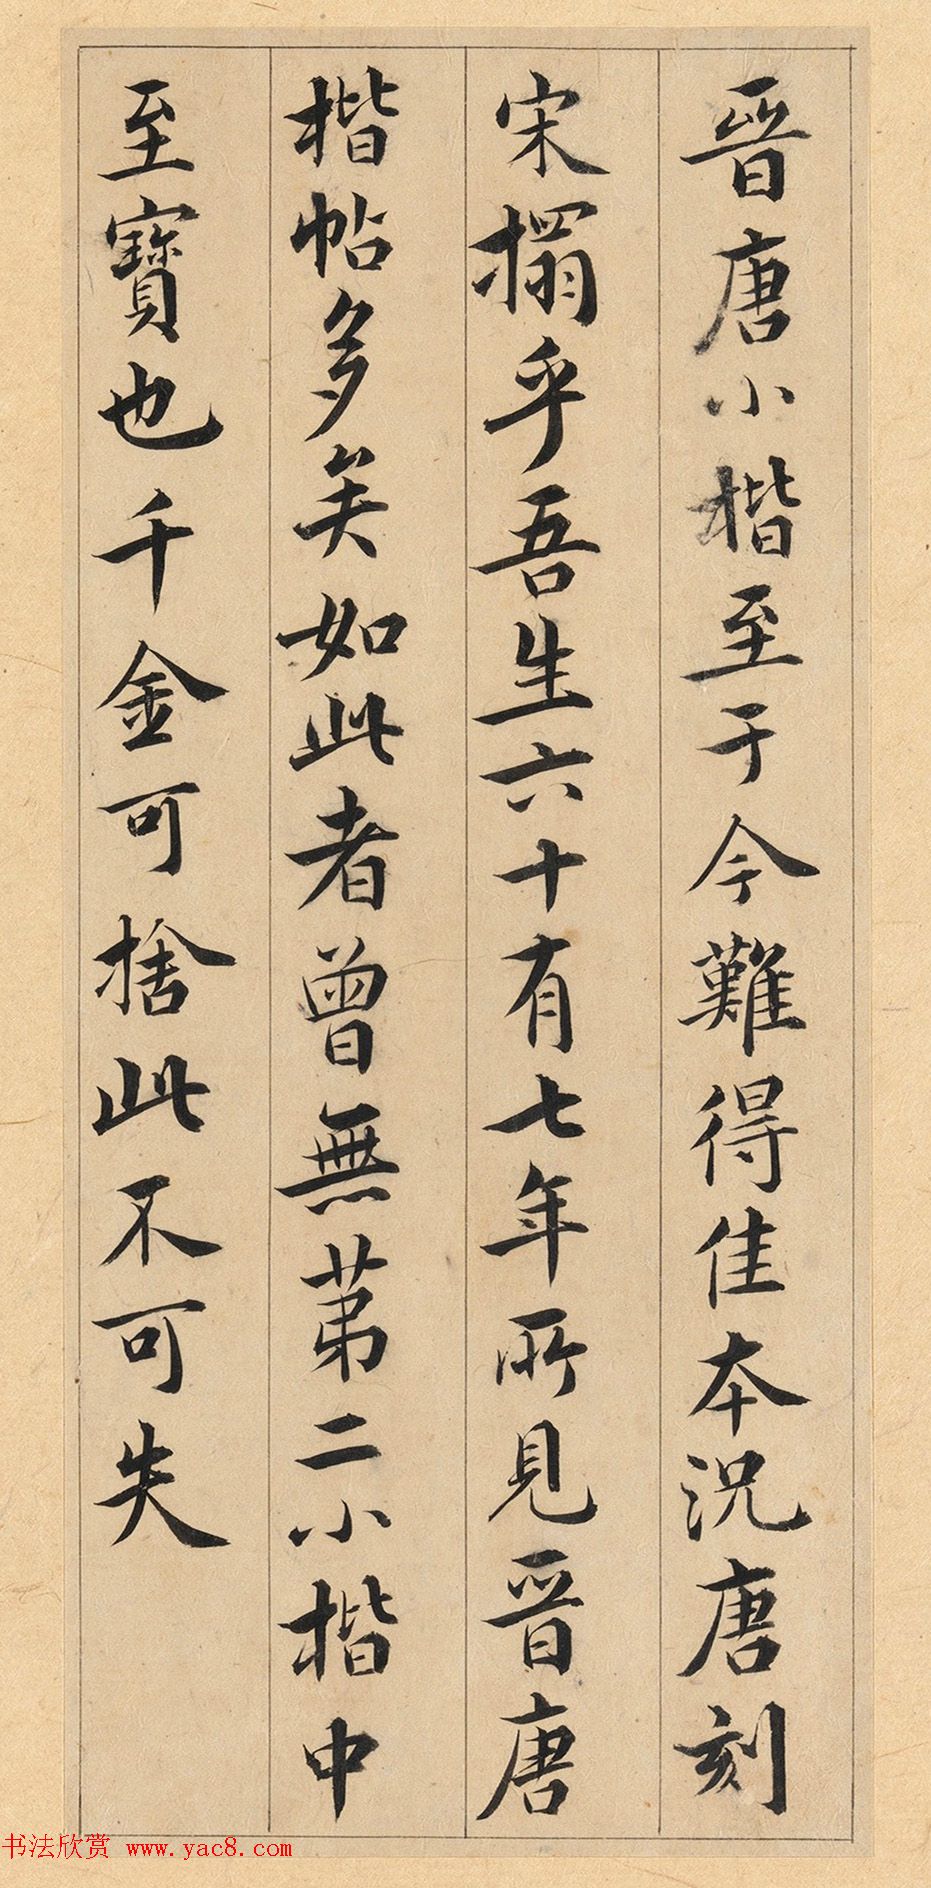 晉唐小楷至于今難得佳本况唐刻
宋搨乎吾生六十有七年所見晉唐
楷帖多矣如此者曾無苐二小楷中
至寶也千金可捨此不可失
书法欣赏 www.yac8.com